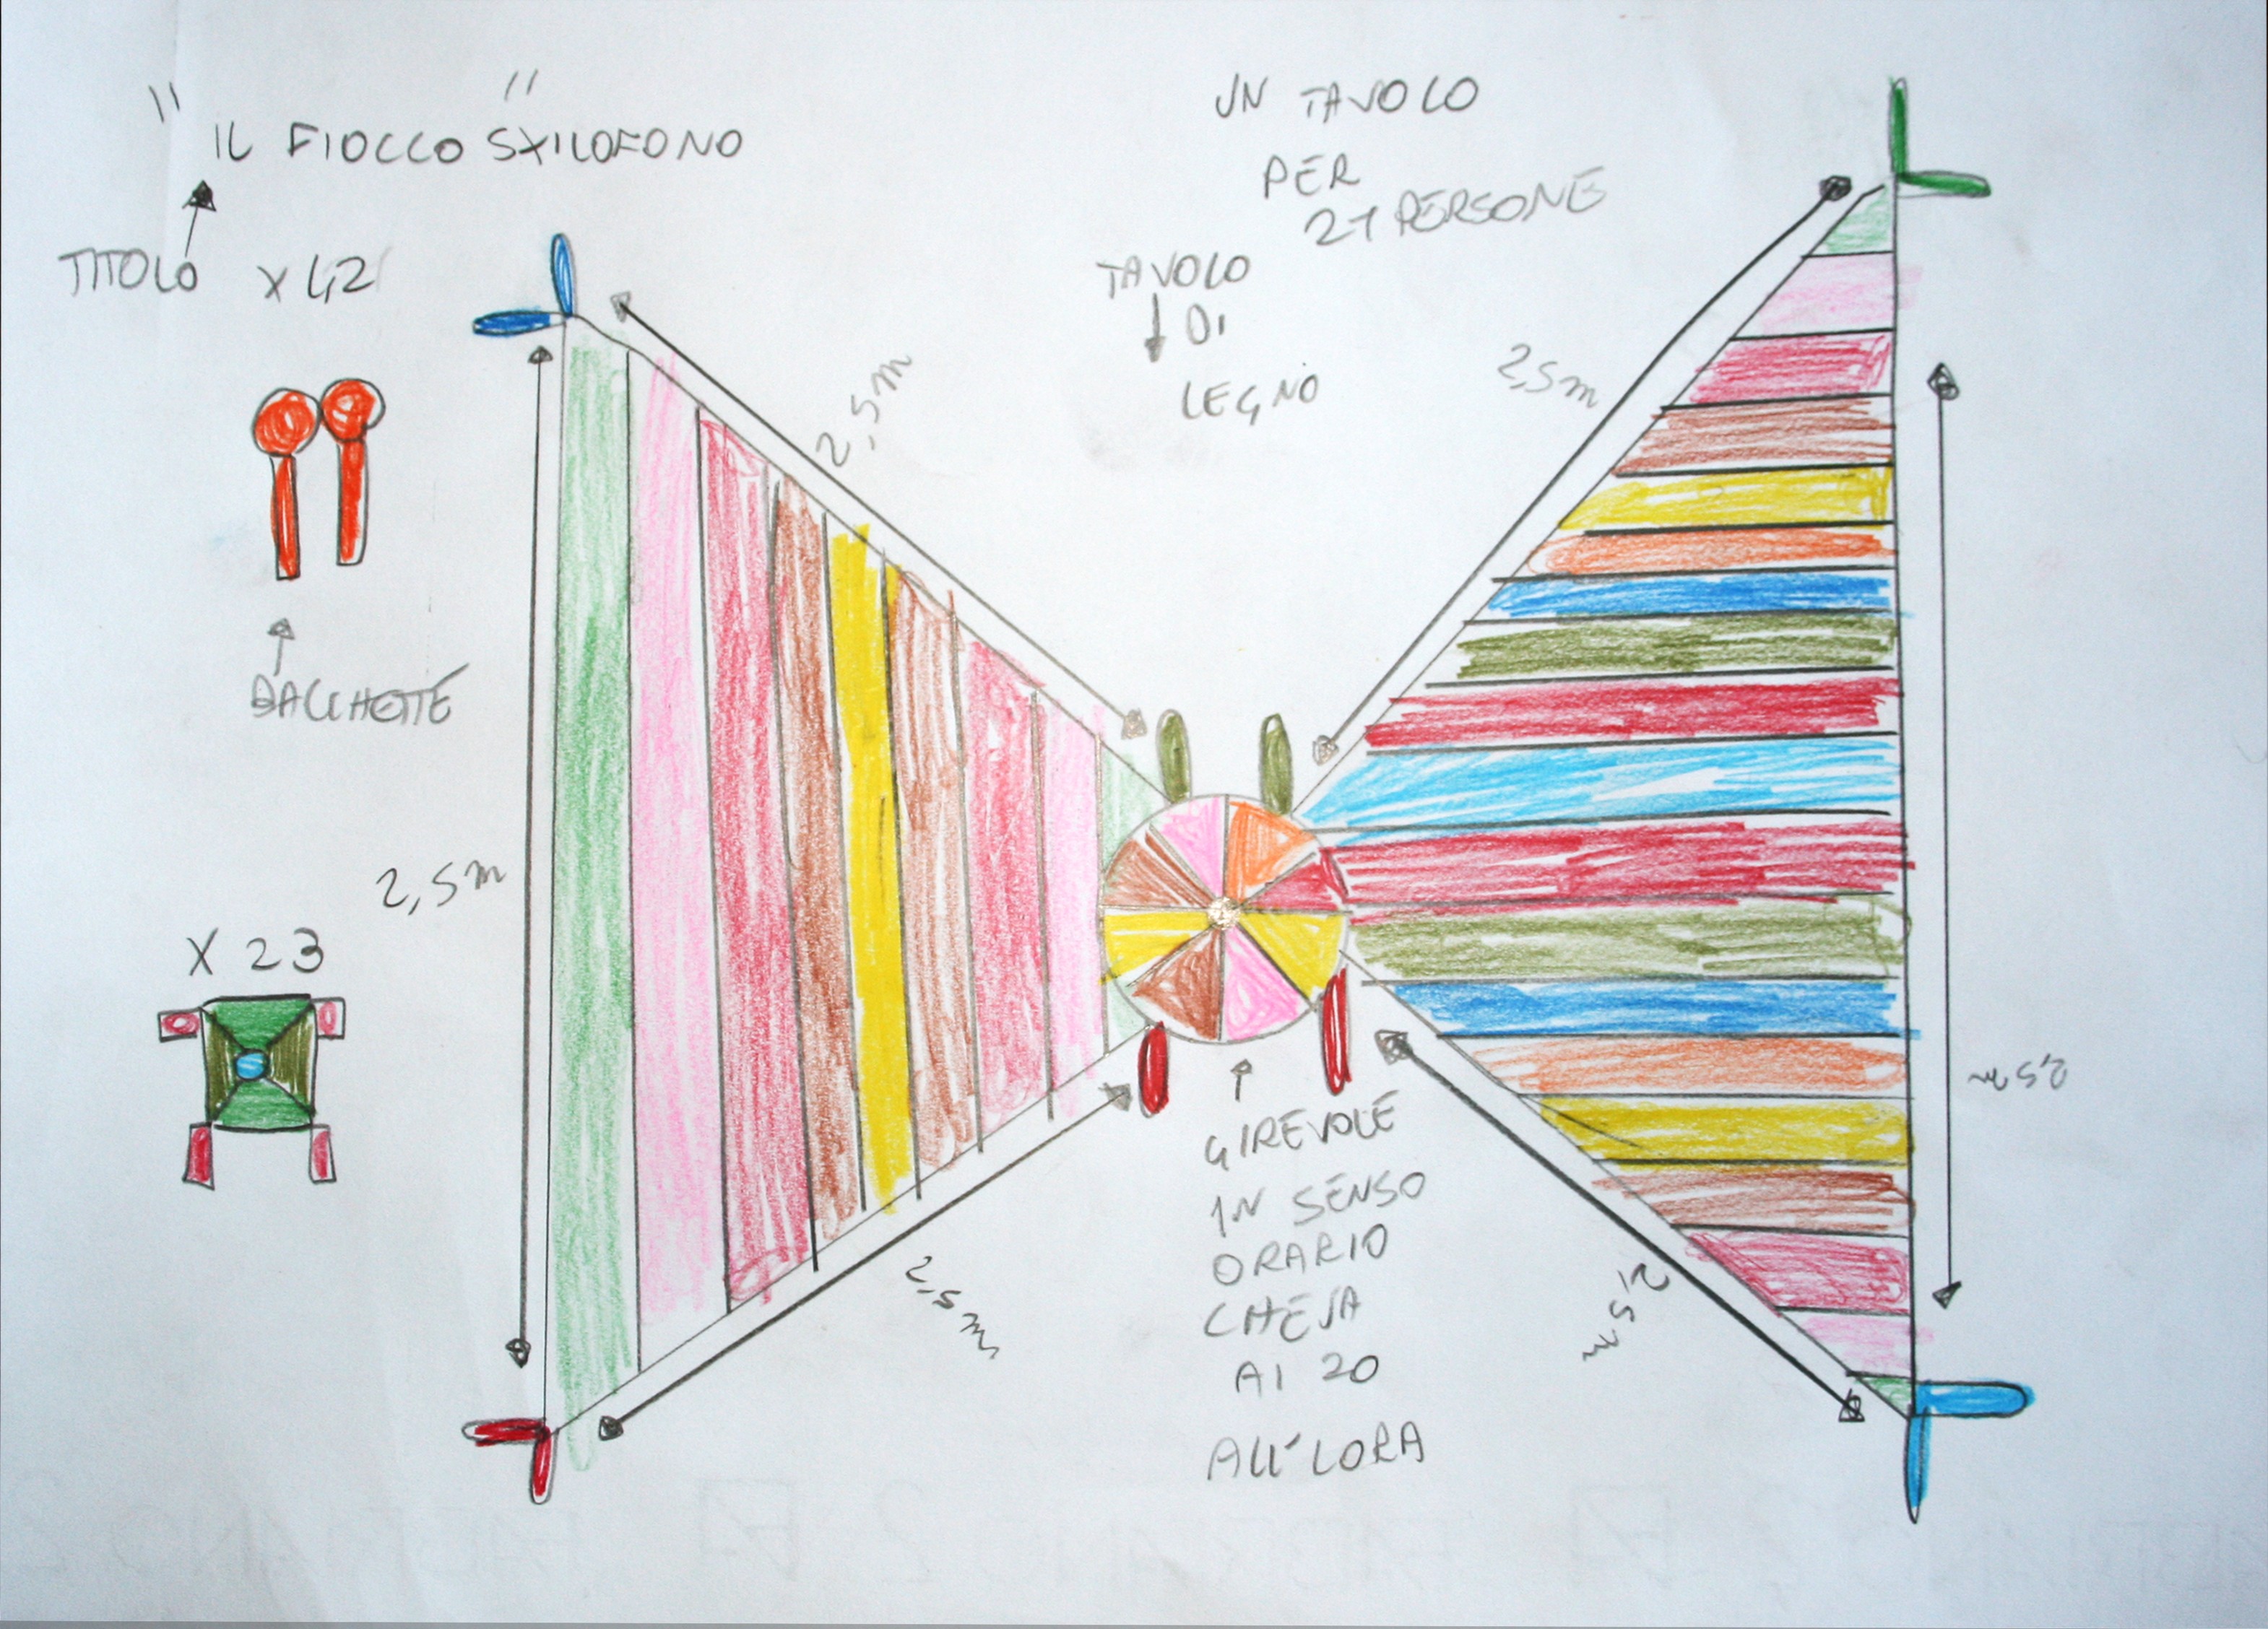 "IL FIOCCO" SXILOFONO
TITOLO
X 42
BACCHETTE
X 23
UN TAVOLO
PER
21 PERSONE
TAVOLO
DI
LEGNO
2,5 m
2,5 m
2,5 m
2,5 m
2,5 m
2,5 m
GIREVOLE
IN SENSO
ORARIO
CHE VA
AI 20
ALL'LORA